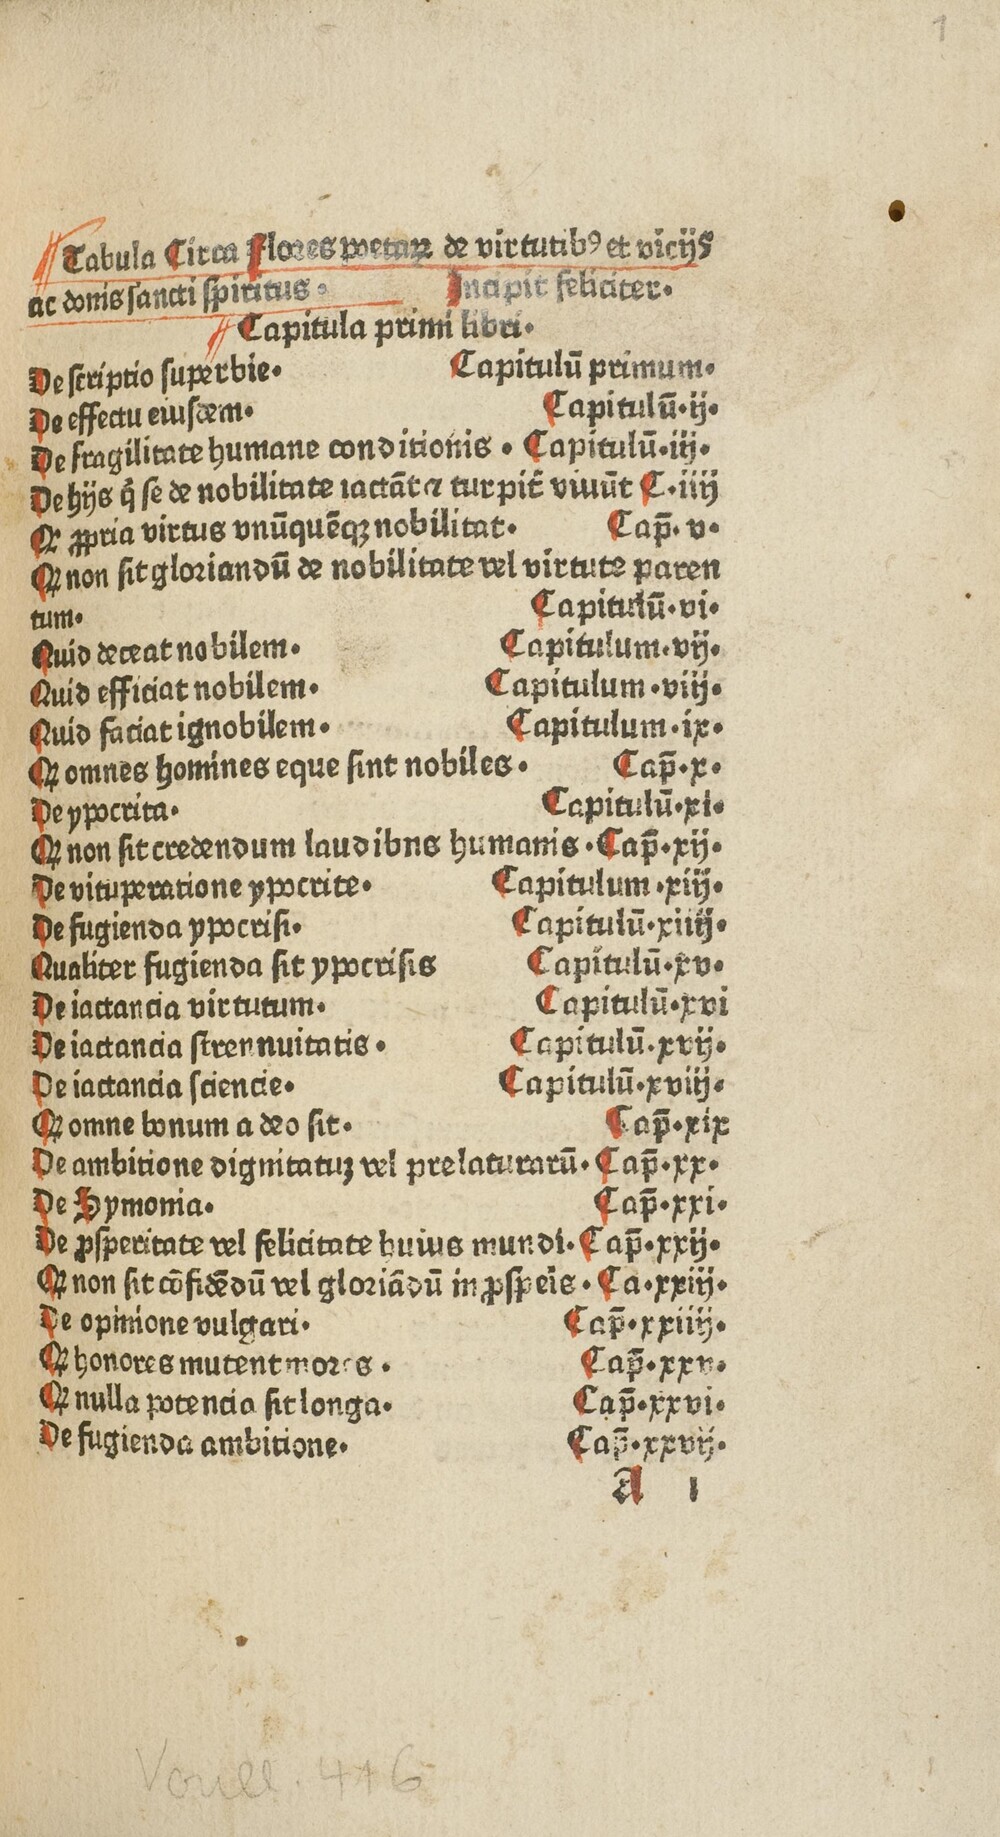 1
Tabula Circa Flores poetaꝝ de virtutibꝰ et vicijs
ac donis sancti spiritus · Incipit feliciter·
Capitula primi libri·
De scriptio superbie· Capitulū primum·
De effectu eiusdem· Capitulū·ij·
De fragilitate humane conditionis · Capitulū·iij·
De hijs q̇ se de nobilitate iactāt ⁊ turpit̄ viuūt C·iiij
Ꝙ ꝓpria virtus vnūquēqꝫ nobilitat· Cap̄· v·
Ꝙ non sit gloriandū de nobilitate vel virtute paren
tum· Capitulū·vi·
Quid deceat nobilem· Capitulum·vij·
Quid efficiat nobilem· Capitulum·viij·
Quid faciat ignobilem· Capitulum·ix·
Ꝙ omnes homines eque sint nobiles· Cap̄·x·
De ypocrita· Capitulū·xi·
Ꝙ non sit credendum laudibns humanis ·Cap̄·xij·
De vituperatione ypocrite· Capitulum·xiij·
De fugienda ypocrisi· Capitulū·xiiij·
Qualiter fugienda sit ypocrisis Capitulū·xv·
De iactancia virtutum· Capitulū·xvi
De iactancia strennuitatis · Capitulū·xvij·
De iactancia sciencie· Capitulū·xviij·
Ꝙ omne bonum a deo sit· Cap̄·xix
De ambitione dignitatuꝫ vel prelaturarū· Cap̄·xx·
De Symonia· Cap̄·xxi·
De ꝓsperitate vel felicitate huius mundi· Cap̄·xxij·
Ꝙ non sit cōfidēdū vel gloriādū in ꝓspeis · Ca·xxiij·
De opinione vulgari· Cap̄·xxiiij·
Ꝙ honores mutent mores · Cap̄·xxv·
Ꝙ nulla potencia sit longa· Cap̄·xxvi·
De fugienda ambitione· Cap̄·xxvij·
A 1
Voull. 416